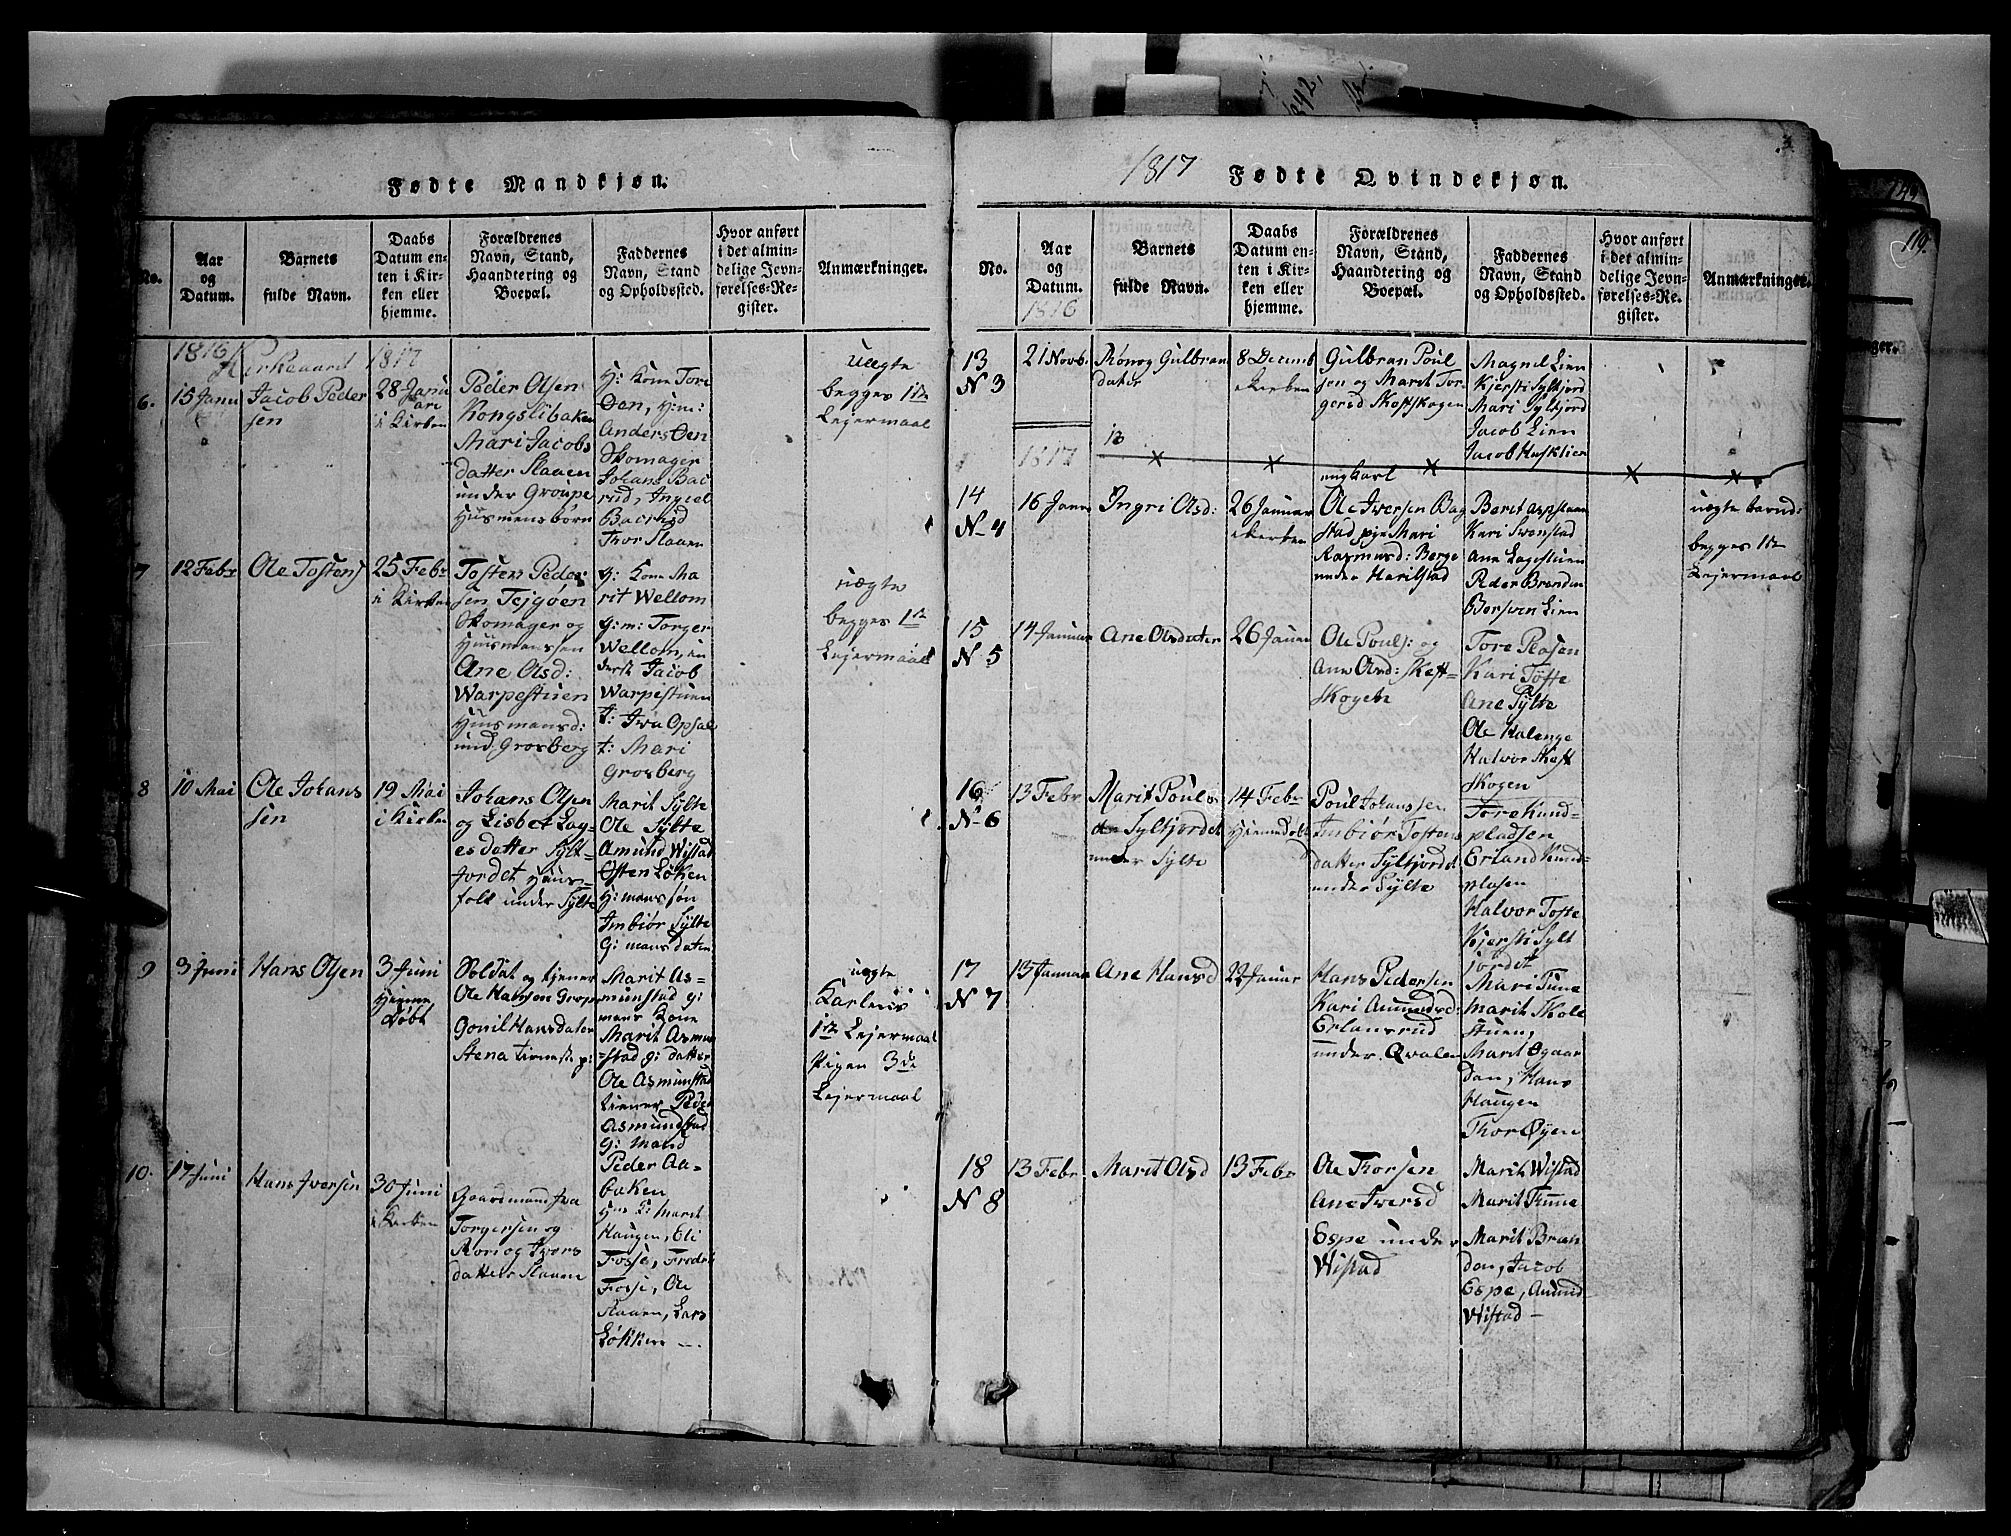 Fødte Mandkjøn.
No.
Aar
og
Datum.
Barnets
fulde Navn.
Daabs
Datum en-
ten i Kir-
ken eller
hjemme.
Forældrenes
Navn, Stand,
Haandtering og
Boepæl.
Faddernes
Navn, Stand
og Opholdssted.
Hvor anført
i det almin-
delige Jevn-
førelses-Re-
gister.
Anmærkninger.
1816
1817
6.
15 Janu
Jacob Peder
sen
28 Janu
ari
i Kirken
Peder Olsen
Kongslibaken
Mari Jacobs
datter Slaaen
under Groupe
Husmensbørn
H: Kone Tore
Øen, H:m:
Anders Øen
Skomager
Johans Bac
rud, Ingoel
Bacrud
Thor Slaaen
uægte
begges 1te
Lejermaal
7
12 Febr
Ole Tostens
25 Febr
i Kirken
Tosten Peder
sen Tejgøen
Skomager og
Huusmanssøn
Ane Olsd:
Warpestuen
Huusmansd:
und. Grosberg
g: Kone Ma
rit Wellom
g:m: Torger
Wellom, in
derst Jacob
Warpestuen
t: Iva Opsal
t: Mari
Grosberg
uægte
begges 1te
Lejermaal
8
10 Mai
Ole Johans
sen
19 Mai
i Kirken
Johans Olsen
og Lisbet Lag-
esdatter Sylt=
jordet Huus=
folk under Sylte
Marit Sylte
Ole Sylte
Amund Wistad
Osten Løken
H: mans søn
Imbiør Sylte
G: mans daten
9
3 Juni
Hans Olsen
3 Juni
Hieme
døbt
Soldat og tjener
Ole Hansen Grop
Gonil Hansdater
Stena tieneste p:
Marit As=
munstad g:
mans Kone
Marit Asmun
=stad g: datter
Ole Asmunstad
tiener Peder
Asmundstad
G: mand
Peder Aa=
baken
uægte
Karlens
1te Lejermaal
Pigen 3de
Lejermaal
10.
17 Juni
Hans Iversen
30 Juni
i Kirken
Gaardmand Iva
Torgersen og
Ronog Ivers
datter Slaaen
Hm K: Marit
Haugen, Eli
Fosse, Fredri
Fosse, Ole
Slaaen, Lars
Løkken —
1817 Fødte Qvindekjøn.
No.
Aar
og
Datum.
1816
Barnets
fulde Navn.
Daabs
Datum en-
ten i Kir-
ken eller
hjemme.
Forældrenes
Navn, Stand,
Haandtering og
Boepæl.
Faddernes
Navn, Stand
og Opholdssted.
Hvor anført
i det almin-
delige Jevn-
førelses-Re-
gister.
Anmærkninger.
13
N 3
21 Novb.
Rønog Gulbran
dater
8 Decemb
i Kerken
Gulbran Poul
sen og Marit Tor
gersd Skoftskogen
Magnil Lien
Kjersti Syltjord
Mari Syltjord
Jacob Lien
Jacob Husklien
1817
14
N 4
16 Janu
Ingri Olsd:
26 Januar
i Kerken
ungkarl
Ole Iversen Bag
stad pige Mari
Rasmusd: Berge
under Harilstad
Berit Aspstaan
Kari Svenstad
Ane Lagestuen
Peder Branden
Borsven Lien
uægte barnd:
begges 1te
Lejermaal
15
N 5
14 Januar
Ane Olsdater
26 Januar
Ole Pouls: og
Ane Olsd: Skoft=
Skogen
Tore Plasen
Kari Tofte
Ane Sylte
Ole Kalenge
Halvor Skoft
Skogen
16
N 6
13 Febr
Marit Pouls
da Syltjordet
under Sylte
14 Febr
Hiemedøbt
Poul Johanssen
Imbiør Tostens
datter Syltjordet
under Sylte
Tore Kund=
pladsen
Erland Kund=
plasen
Halvor Tofte
Kjersti Sylt
jordet
17
N 7
13 Januar
Ane Hansd
22 Januar
Hans Pedersen
Kari Amundsd:
Erlansrud
under Qvalen
Mari Tune
Marit Skole
stuen,
Marit Øgaar
den, Hans
Haugen
Thor Øyen
18
N 8
13 Febr.
Marit Olsd
13 Febr
Ole Thorsen
Ane Iversd
Espe under
Wistad
Marit Wistad
Marit Tune
Marit Bran
den, Jacob
Espe, Amund
Wistad —
119.